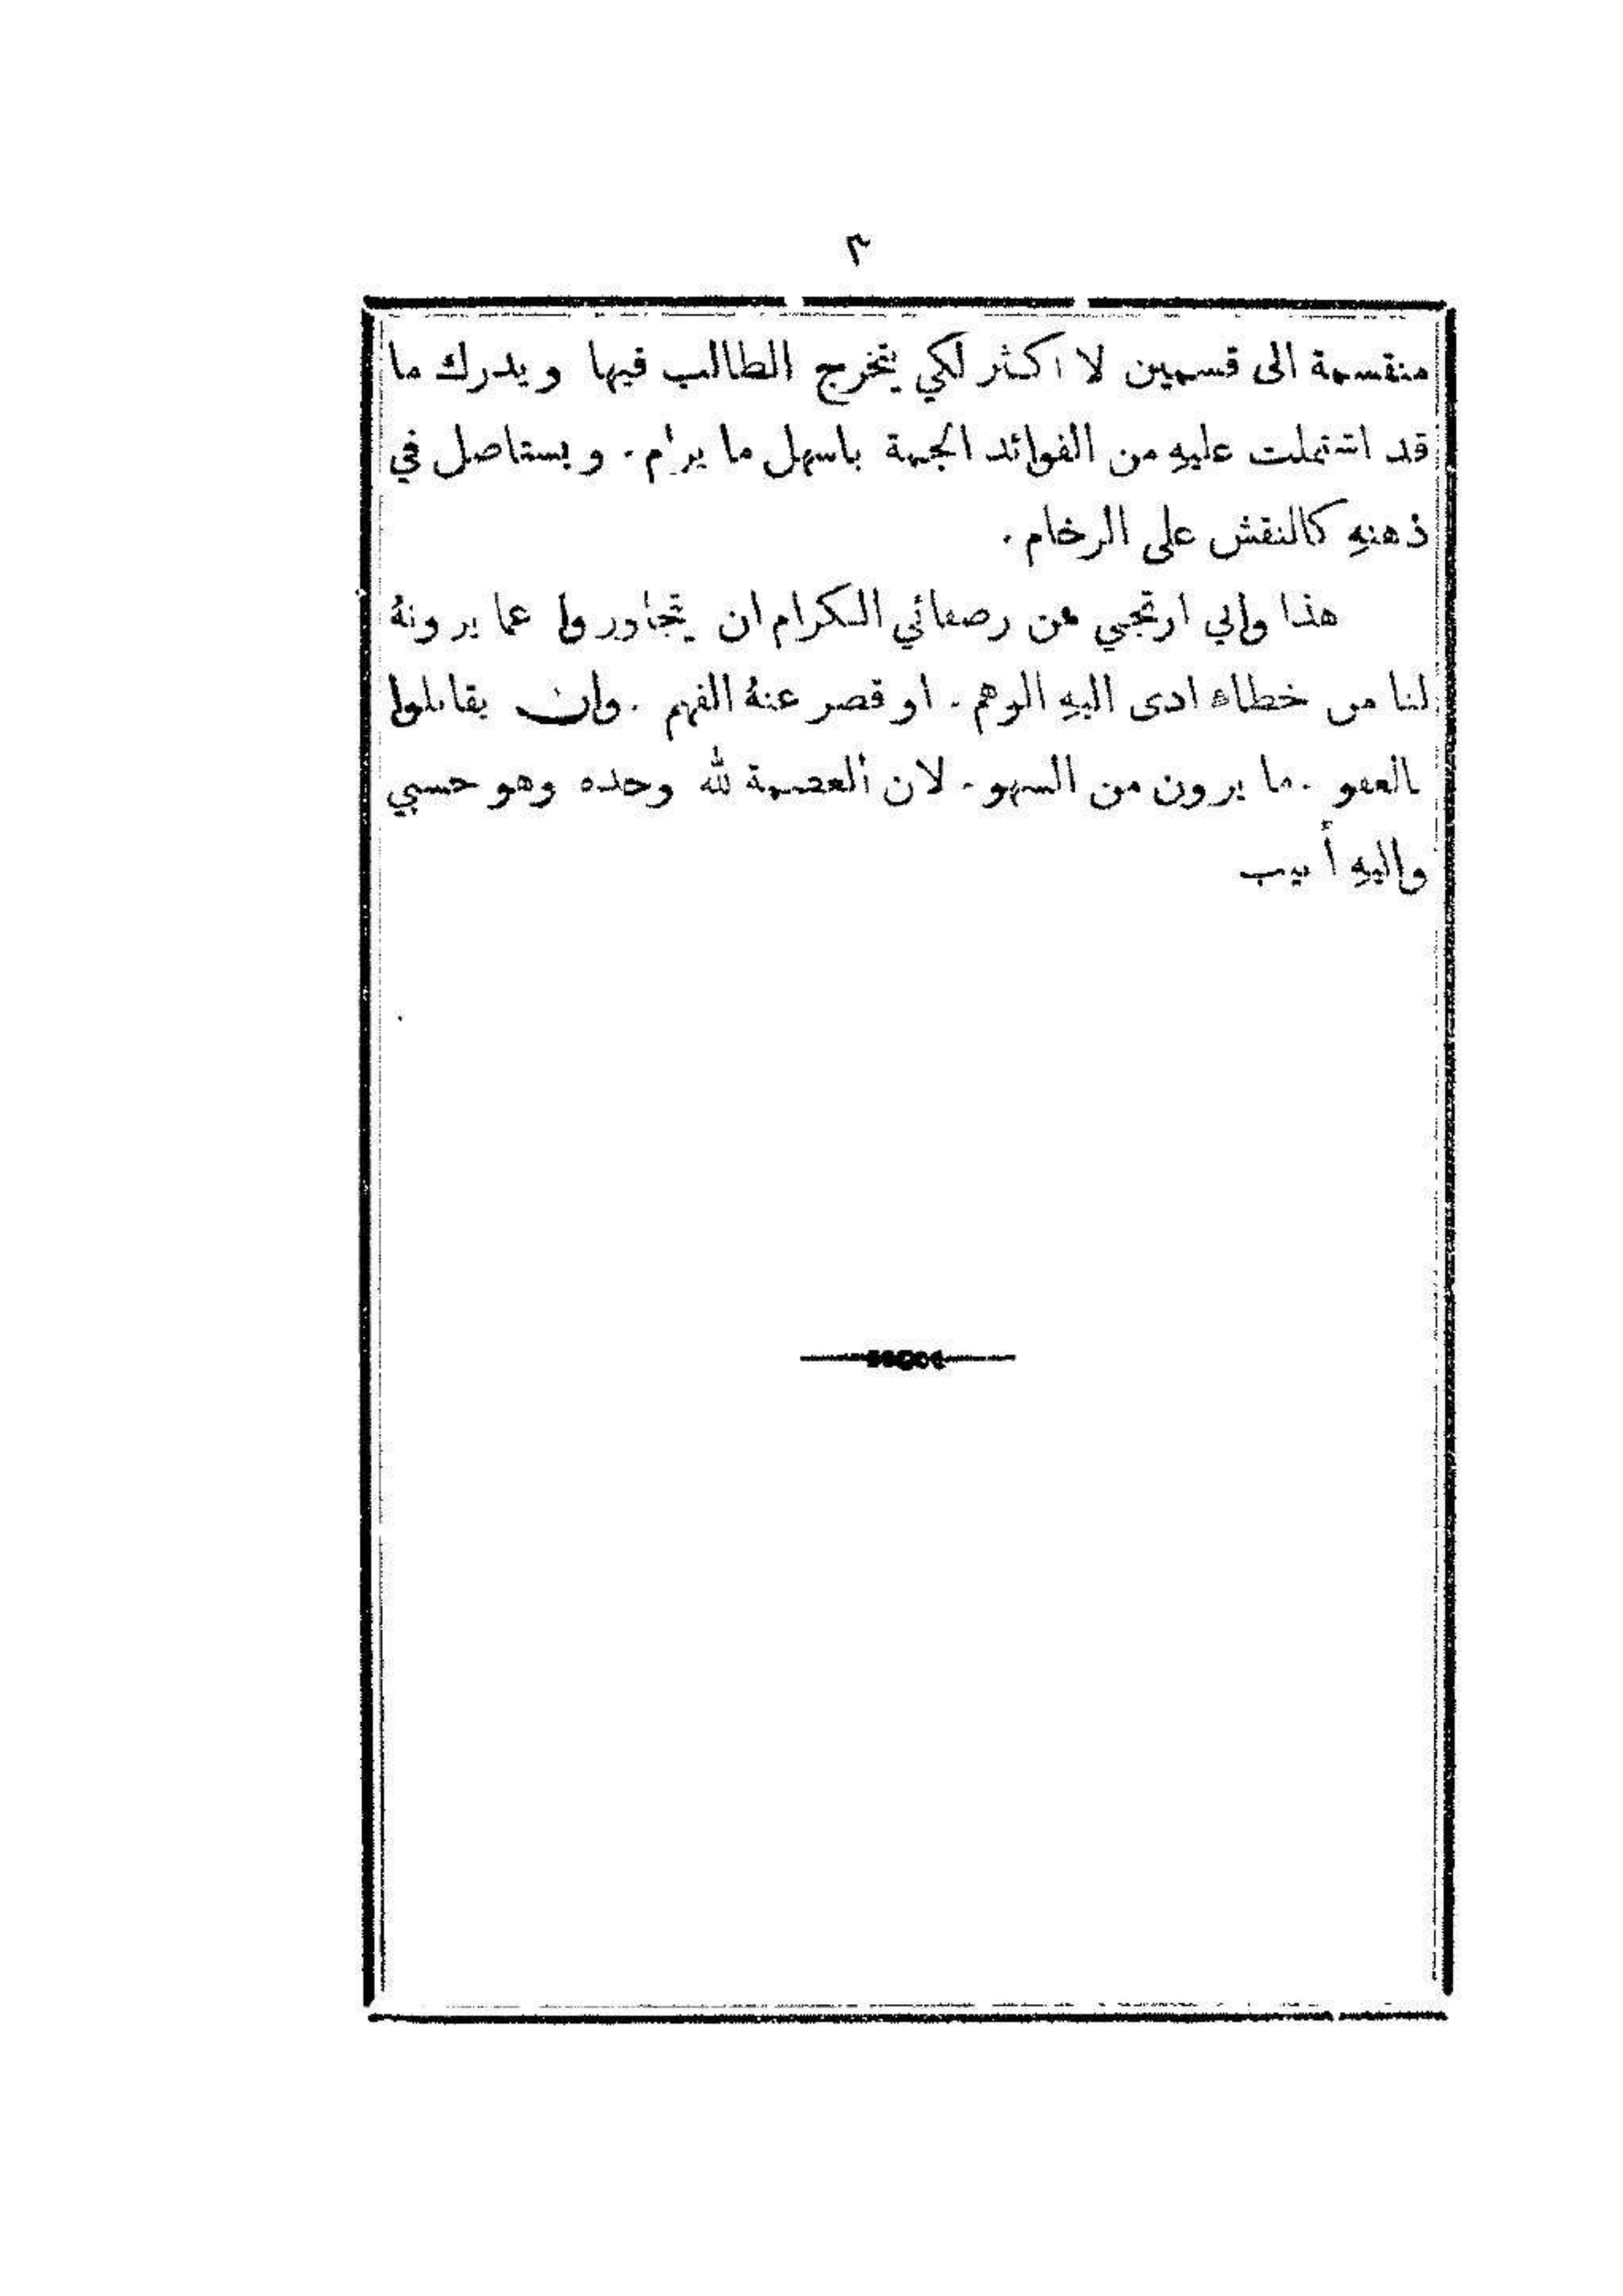 ٣
منقسمة الى قسمين لا اكثر لكي يتخرج الطالب فيها ويدرك ما
قد اشتملت عليهِ من الفوائد الجمة باسهل ما يرام. ويستاصل في
ذهنهِ كالنقش على الرخام.
هذا واني ارتجي من رصفائي الكرام ان يتجاوروا عما يرونهُ
لنا من خطاه ادى اليهِ الوهم. او قصر عنهُ الفهم. وان يقابلوا
بالعفو. ما يرون من السهو. لان العصمة لله وحده وهو حسبي
واليهِ أنيب